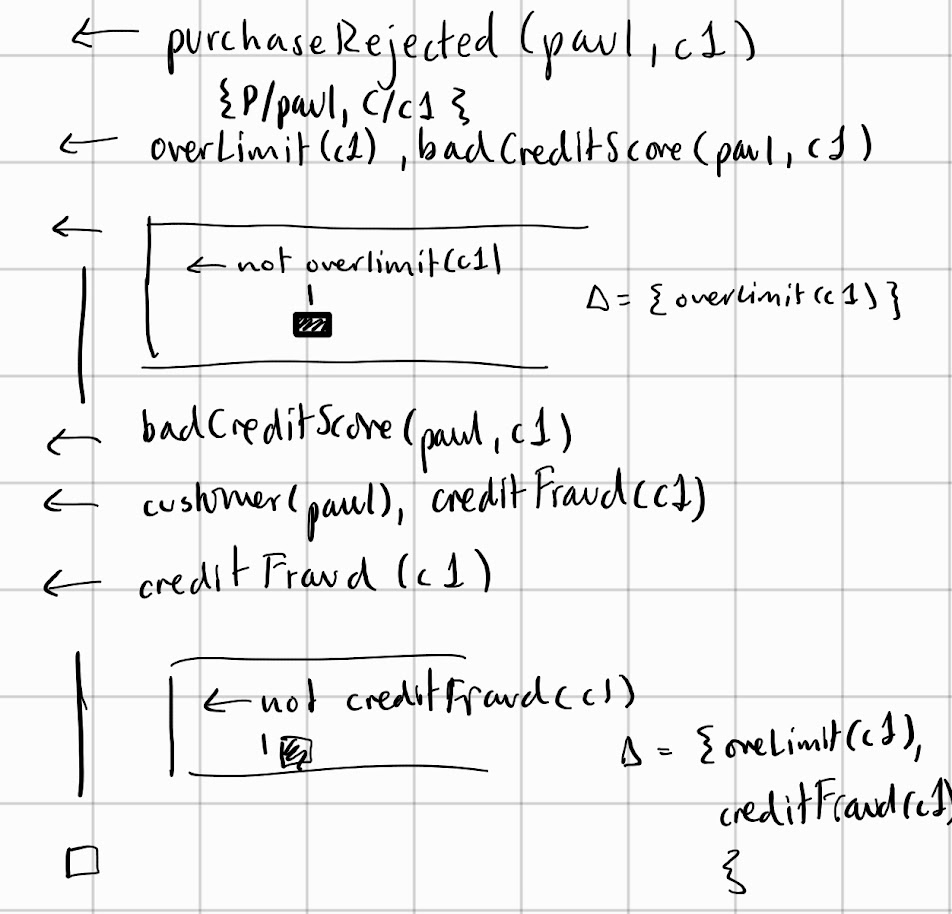 ← purchaseRejected (paul, c1)
{P/paul, C/c1}
← overLimit(c1), badCreditScore(paul, c1)
←
← not overlimit(c1)
Δ = {overLimit(c1)}
← badCreditScore(paul, c1)
← customer(paul), creditFraud(c1)
← creditFraud (c1)
← not creditFraud(c1)
Δ = {oveLimit(c1),
creditFraud(c1)
}